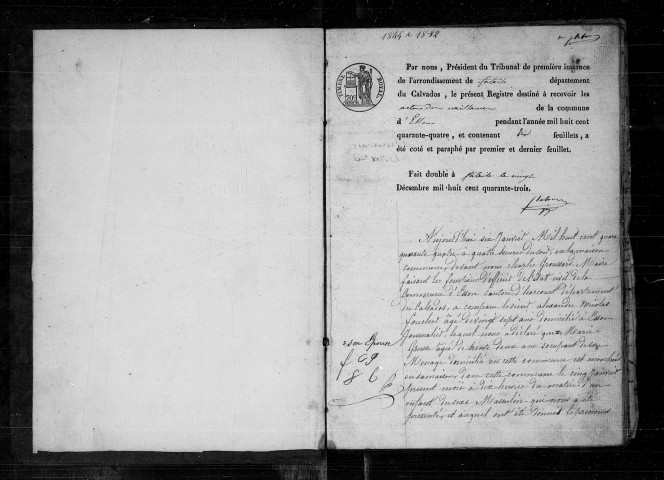 1844 à 1852
TIMBRE ROYAL
Par nous, Président du Tribunal de première instance
de l'arrondissement de falaise département
du Calvados, le présent Registre destiné à recevoir les
actes de naissances de la commune
d'Esson pendant l'année mil huit cent
quarante-quatre, et contenant dix feuillets, a
été coté et paraphé par premier et dernier feuillet.
Fait double à falaise le vingt
Décembre mil huit cent quarante-trois.
Aujourd'hui six Janvier Mil huit cent
quarante quatre a quatre heures du soir, en la maison
commune, devant nous Maire
faisant les fonction d'officier de l'état civil de la
Commune d'Esson canton d'harcourt département
du Calvados, a comparu le sieur alexandre Nicolas
agé de vingt sept ans domicilié a Esson
Journalier, lequel nous a déclaré que Marie
agée de trente deux ans
Menage domiciliée en cette commune est accouchée
en sa maison, dans cette commune le cinq Janvier
present mois a dix heures du matin d'un
enfant du sexe Masculin qui nous a été
présenté, et auquel ont été donnés les prénoms
son Epouse